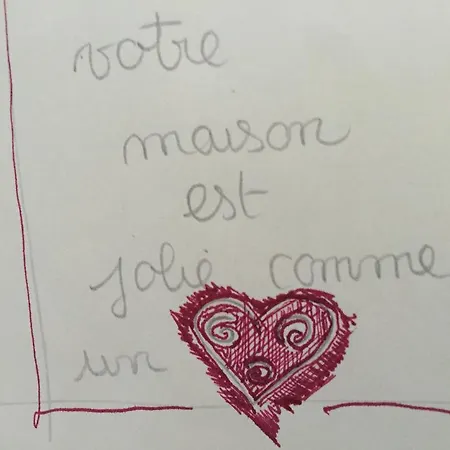 votre
maison
est
jolie comme
un